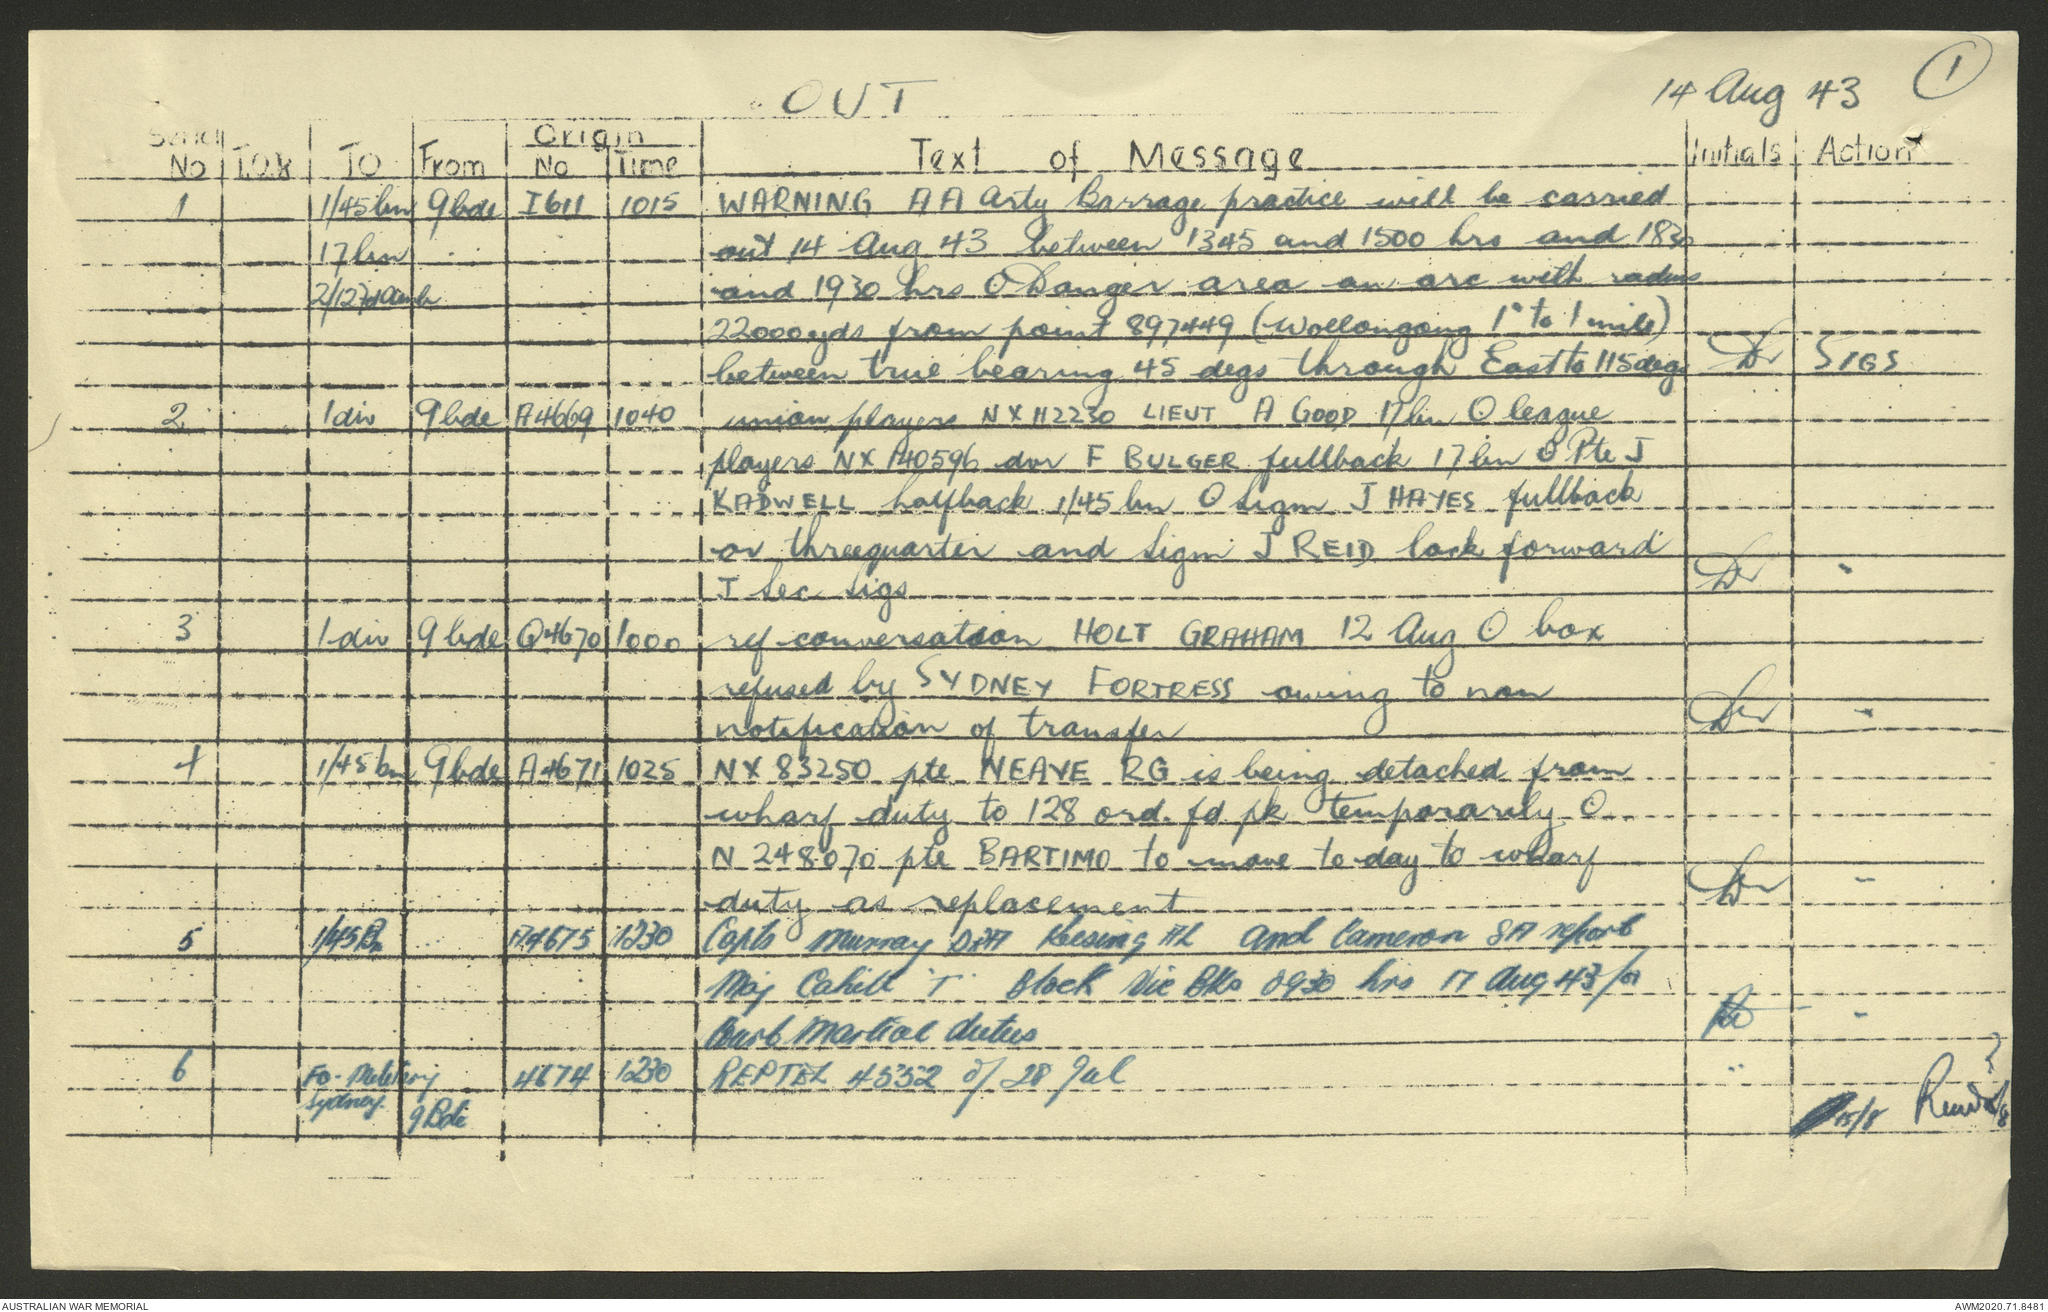 OUT
14 Aug 43
1
Serial No T.O.R TO From Origin No Time Text of Message Initials Action
1 1/45 bn 9 bde I611 1015 WARNING AA Arty Barrage practice will be carried
17 bn out 14 Aug 43 between 1345 and 1500 hrs and 1830
2/12 fd amb and 1930 hrs O Danger area an arc with radius
22000 yds from point 897449 (Wollongong 1" to 1 mile)
between true bearing 45 degs through East to 115 degs SIGS
2 1 div 9 bde A4669 1040 union players NX112230 LIEUT A GOOD 17 bn O league
players NX140596 dvr F BULGER fullback 17 bn O Pte J
KADWELL halfback 1/45 bn O Sigm J HAYES fullback
or threequarter and Sigm J REID lock forward "
J Sec Sigs
3 1 div 9 bde Q4670 1000 ref conversation HOLT GRAHAM 12 Aug O box
refused by SYDNEY FORTRESS owing to non
notification of transfer "
4 1/45 bn 9 bde A4671 1025 NX 83250 pte NEAVE RG is being detached from
wharf duty to 128 ord. fd pk temporarily O
N 248070 pte BARTIMO to move to-day to wharf "
duty as replacement
5 1/45 Bn A4675 1230 Capts Murray Keesing AL and Cameron SA report
Maj Cahill 'T' Block Vic Bks 0930 hrs 17 Aug 43 for
Court Martial duties "
6 Fo-Military 4674 1230 REPTEL 4552 of 28 Jul "
Sydney. 9 Bde
15/8
AUSTRALIAN WAR MEMORIAL
AWM2020.71.8481